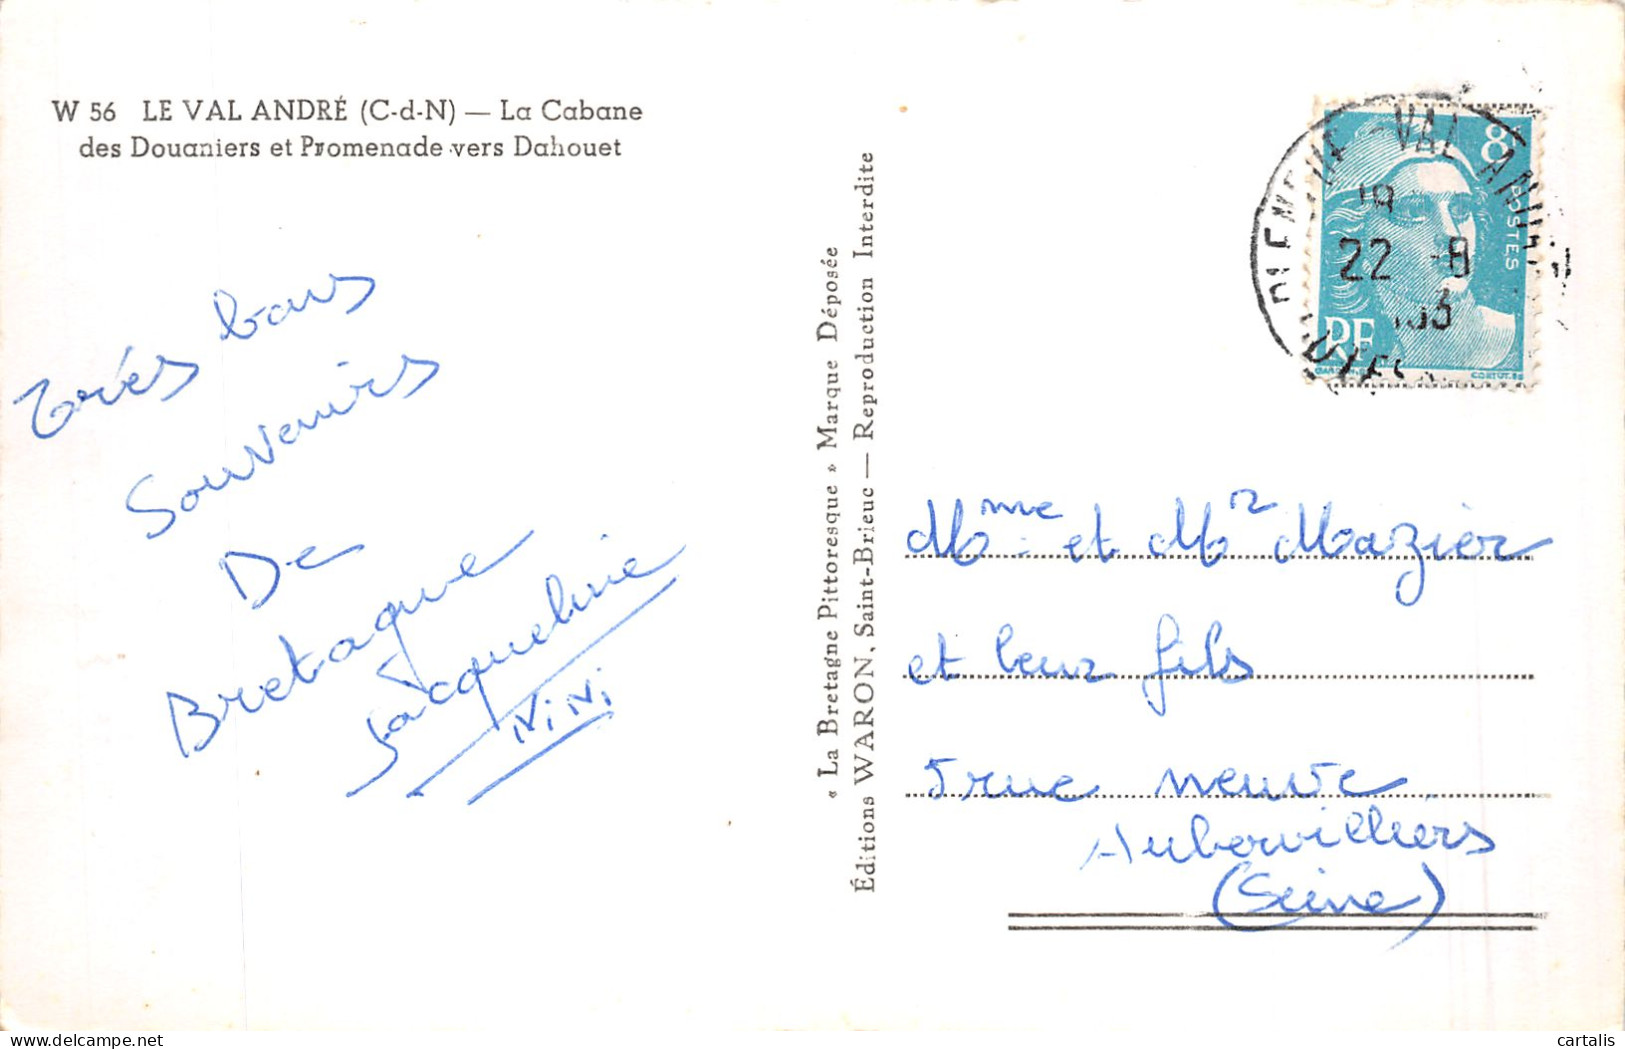 W 56 LE VAL ANDRÉ (C-d-N) — La Cabane
des Douaniers et Promenade vers Dahouet
Très bons
Souvenirs
De
Bretagne
Jacqueline
NiNi
« La Bretagne Pittoresque » Marque Déposée
Éditions WARON, Saint-Brieuc — Reproduction Interdite
8F
POSTES
RF
PLENEUF-VAL ANDRE
18
22 -8
Mme et Mr Mazier
et leur fils
5 rue neuve
Aubervilliers
(Seine)
cartalis